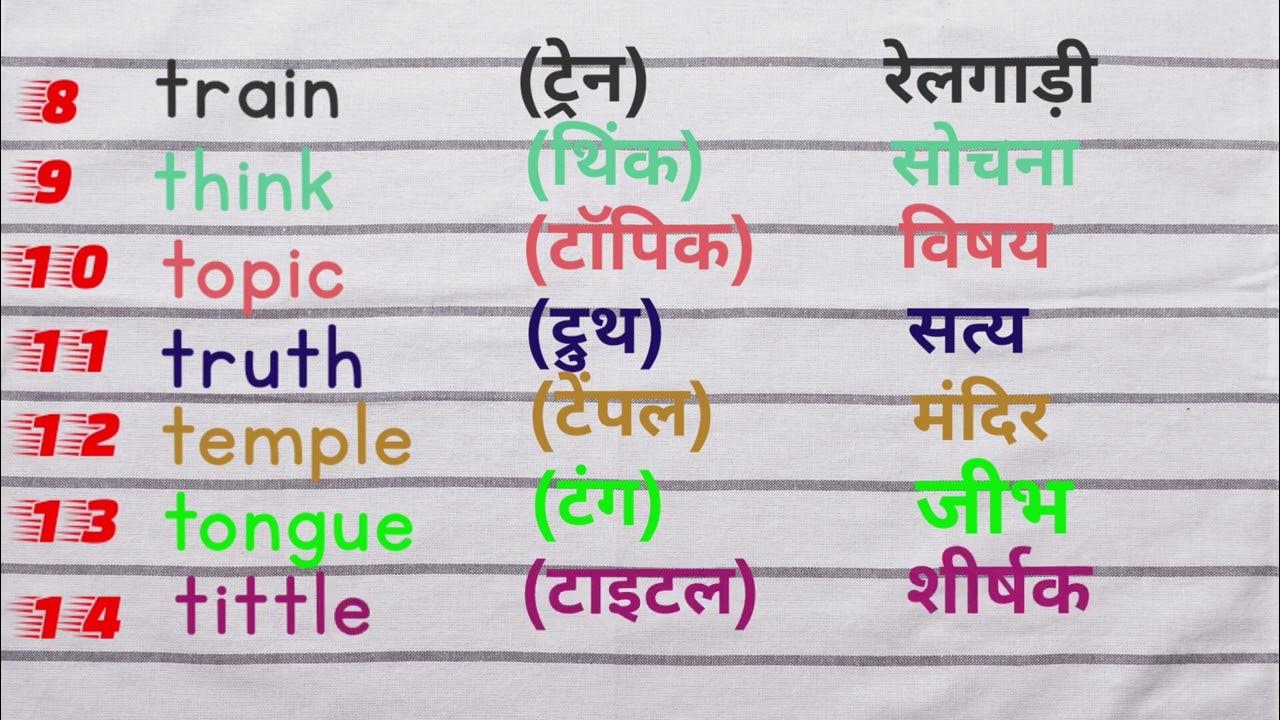 8 train (ट्रेन) रेलगाड़ी
9 think (थिंक) सोचना
10 topic (टॉपिक) विषय
11 truth (ट्रुथ) सत्य
12 temple (टेंपल) मंदिर
13 tongue (टंग) जीभ
14 tittle (टाइटल) शीर्षक